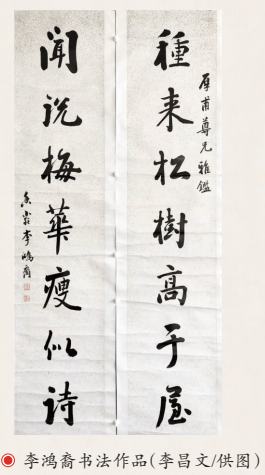 種来松樹高于屋
甫尊兄雅鑑
聞説梅華瘦似詩
香李鴻裔
李鸿裔书法作品(李昌文/供图)